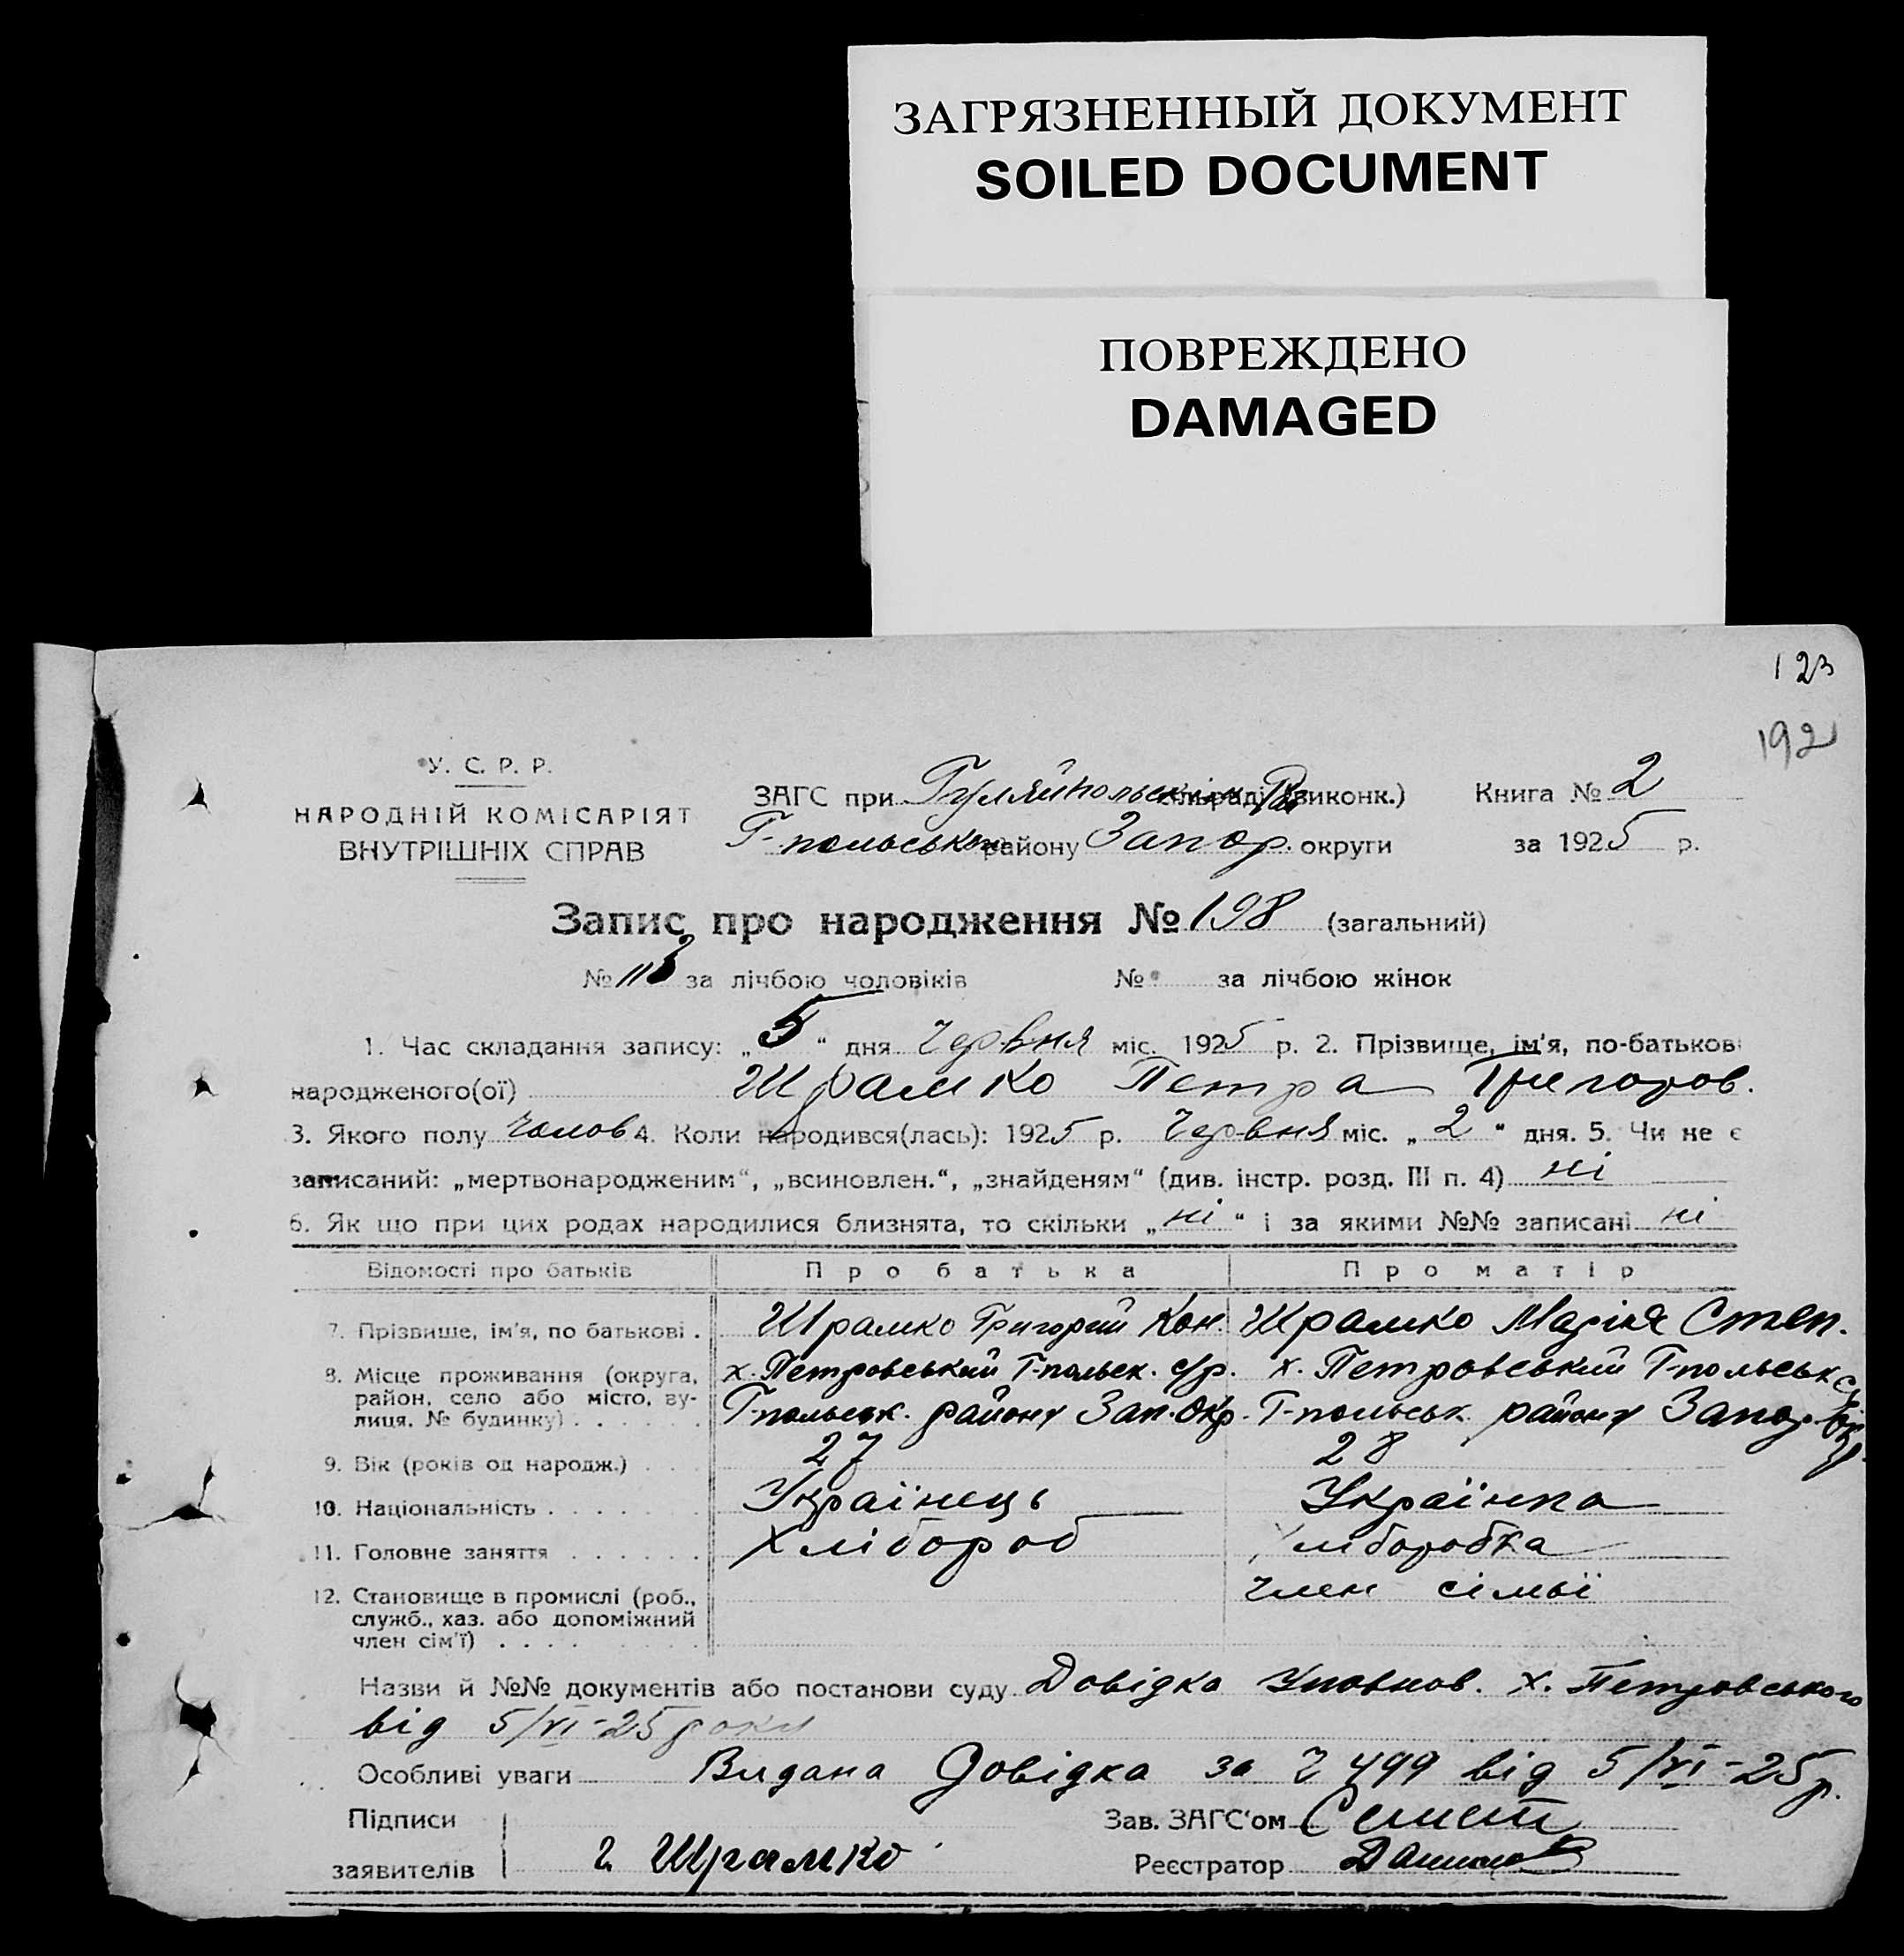 ЗАГРЯЗНЕННЫЙ ДОКУМЕНТ
SOILED DOCUMENT
ПОВРЕЖДЕНО
DAMAGED
123
192
У. С. Р. Р.
НАРОДНІЙ КОМІСАРІЯТ
ВНУТРІШНІХ СПРАВ
ЗАГС при Гуляйпольськім (виконк.) Книга № 2
Г-польського району Запор. округи за 1925 р.
Запис про народження № 198 (загальний)
№ 113 за лічбою чоловіків № за лічбою жінок
1. Час складання запису: „5“ дня Червня міс. 1925 р. 2. Прізвище, ім'я, по-батькові
народженого(ої) Шрамко Петра Григоров.
3. Якого полу Чолов 4. Коли народився(лась): 1925 р. Червня міс. „2“ дня. 5. Чи не є
записаний: „мертвонародженим“, „всиновлен.“, „знайденям“ (див. інстр. розд. III п. 4) ні
6. Як що при цих родах народилися близнята, то скільки „ні“ і за якими №№ записані ні
Відомості про батьків Про батька Про матір
7. Прізвище, ім'я, по батькові . Шрамко Григорий Кон. Шрамко Марія Степ.
8. Місце проживання (округа, район, село або місто, вулиця, № будинку) х. Петровський Г-польск. с/р. х. Петровський Г-польськ с/р
Г-польськ. району Зап. Окр. Г-польськ району Запор Окр.
9. Вік (років од народж.) 27 28
10. Національність Українець Українка
11. Головне заняття Хлібороб Хліборобка
12. Становище в промислі (роб., член сімьї
служб., хаз. або допоміжний
член сім'ї)
Назви й №№ документів або постанови суду Довідка Уповнов. х. Петровського
від 5/VI-25 року
Особливі уваги Видана Довідка за № 499 від 5/VI-25 р.
Підписи Зав. ЗАГС'ом
заявителів Г. Шрамко Реєстратор